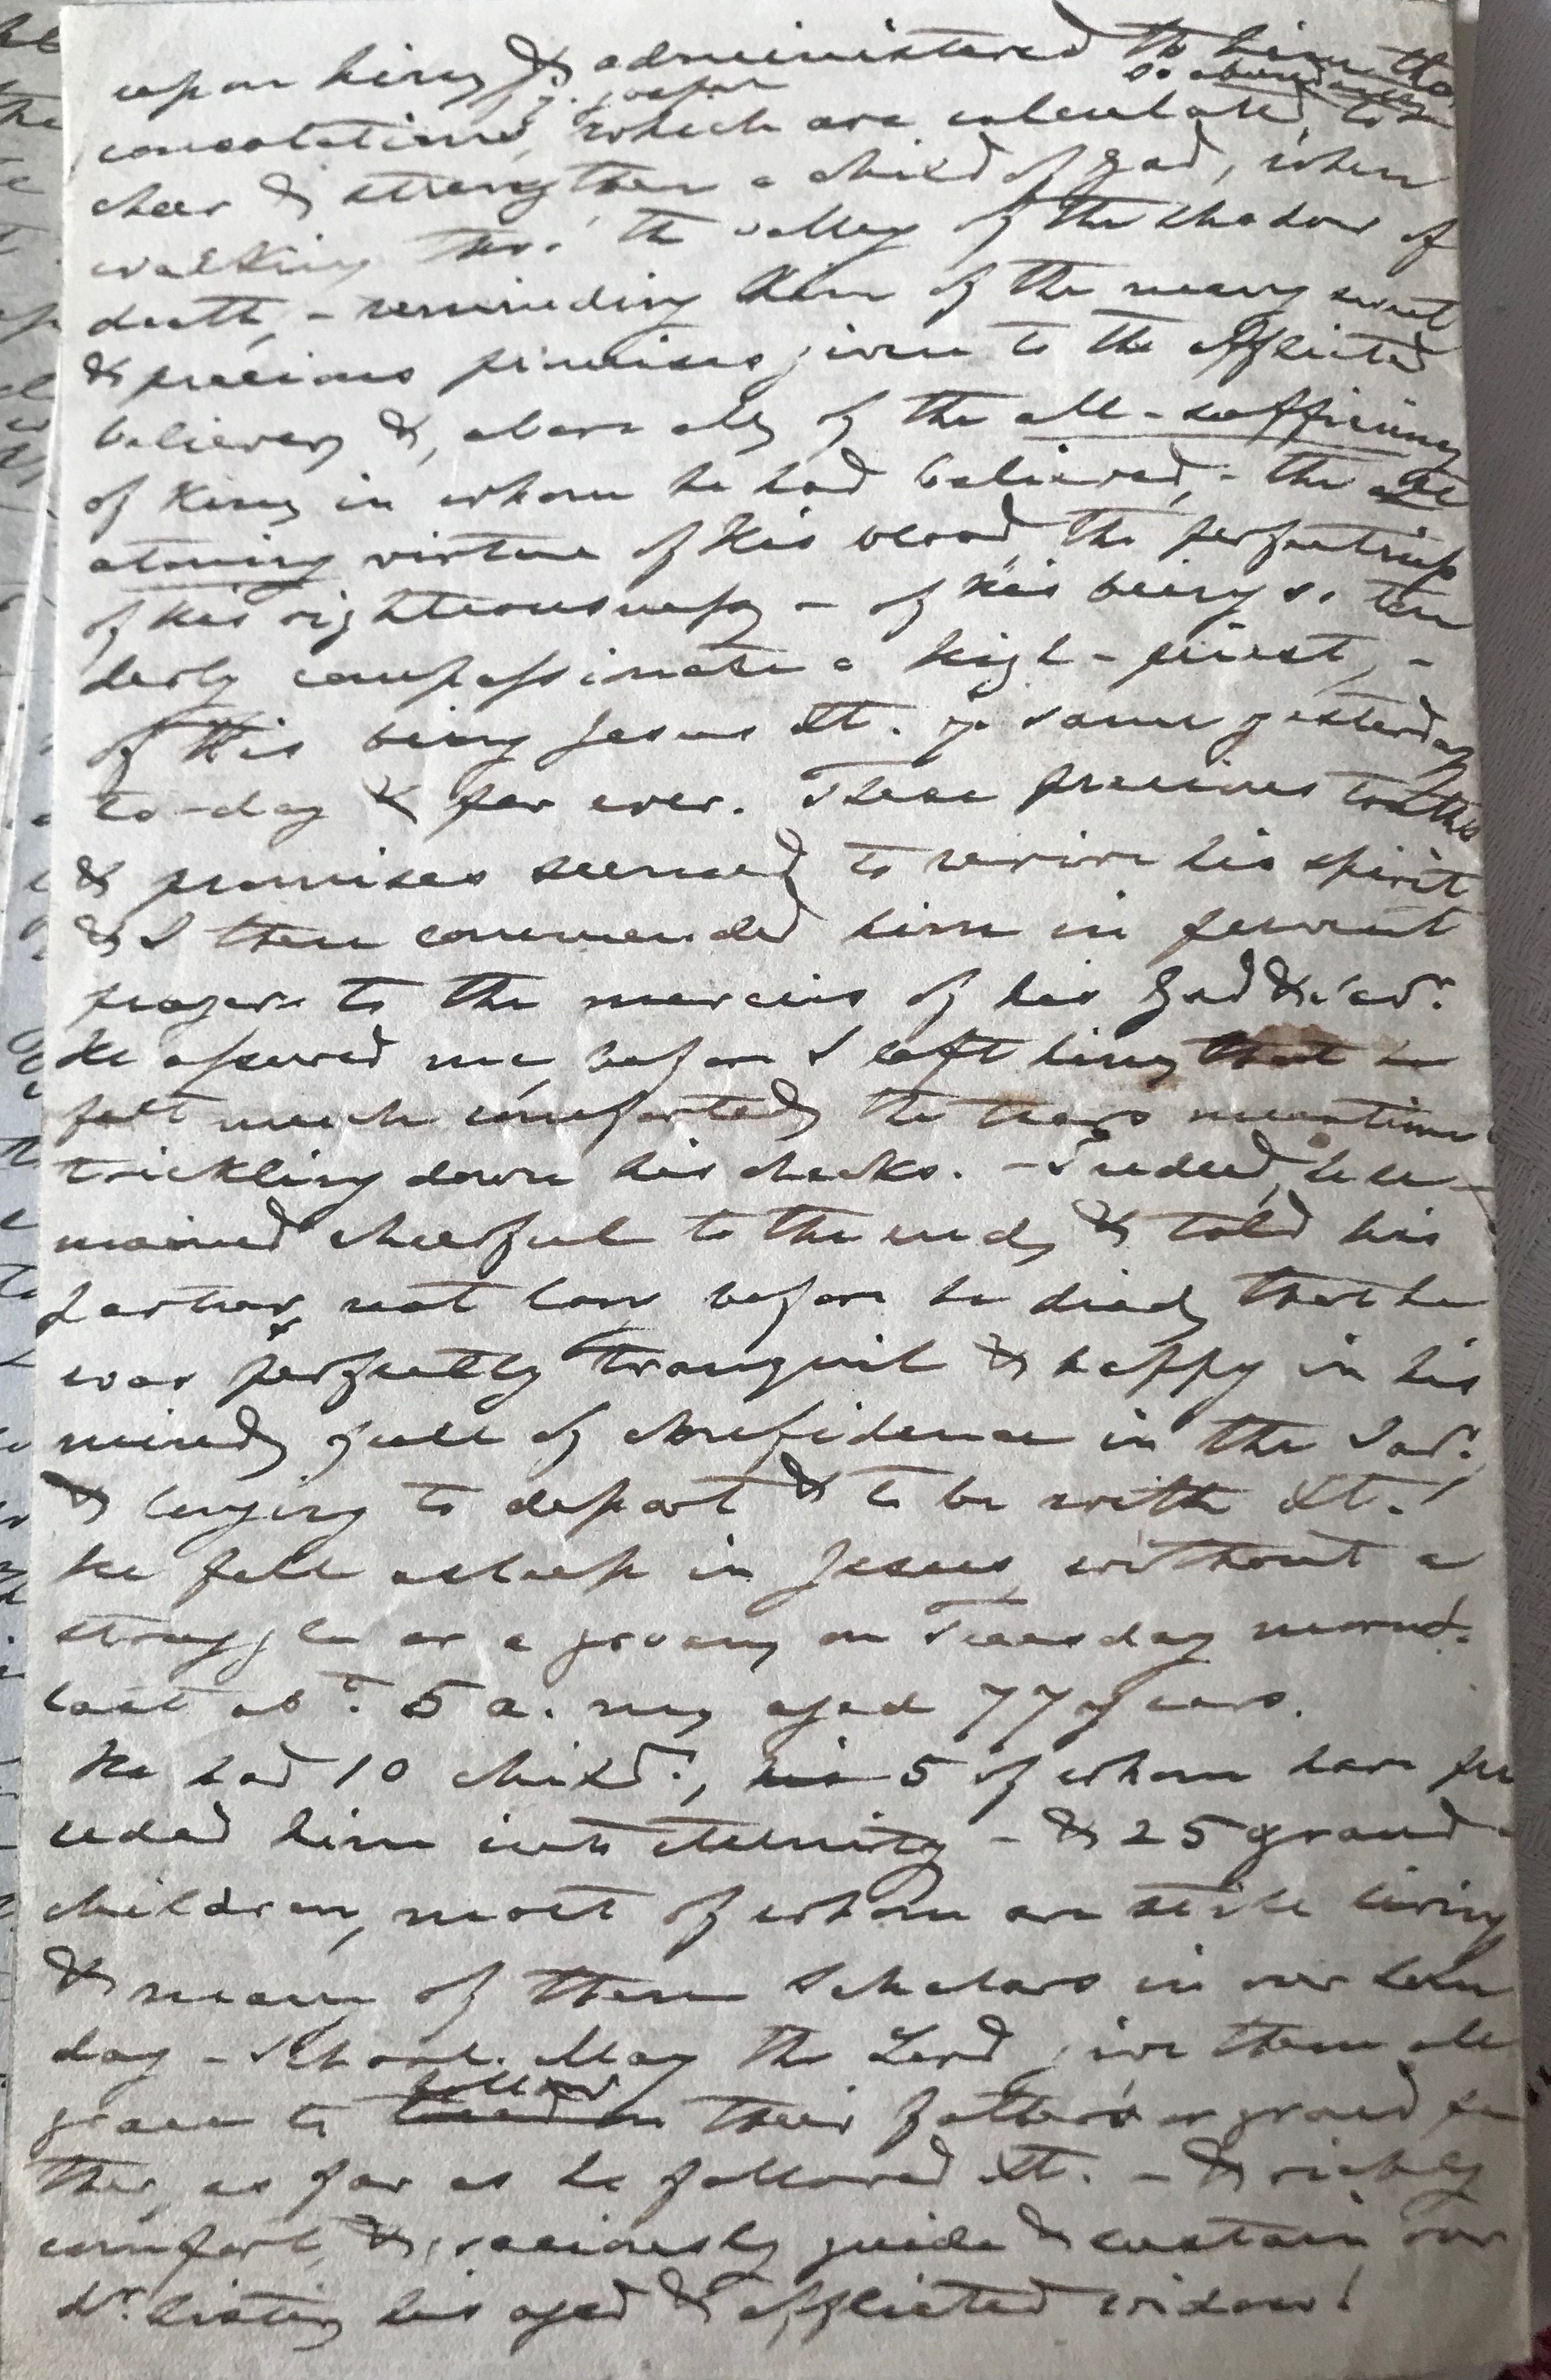 upon him, & administered to him the
consolations of ye. gospel which are calculated so abundantly to
cheer & strengthen a child of God, when
walking thro' the valley of the shadow of
death, - reminding him of the many sweet
& precious promises given to the afflicted
believer, &, above all, of the all-sufficiency
of Him, in whom he had believed, - the
atoning virtue of His blood, the perfectness
of His righteousness, - of His being so ten
derly compassionate a high-priest, -
of His being Jesus Xt. ye. same yesterday
to-day & for ever. These precious truths
& promises seemed to revive his spirit
& I then commended him in fervent
prayer to the mercies of his God & Savr.
He assured me, before I left him, that he
felt much comforted, the tears meantime
trickling down his cheeks. - Indeed, he re-
mained cheerful to the end, & told his
partner, not long before he died, that he
was perfectly tranquil & happy in his
mind, full of confidence in the Savr.,
& longing to depart & to be with Xt.!
He fell asleep in Jesus, without a
struggle or a groan, on Tuesday morng.
last abt. 5 a. m, aged 77 years.
He had 10 childn., his 5 of whom have pre
ceded him into eternity - & 25 grand-
children, most of whom are still living
& many of them scholars in our Sun
day-School. May the Lord give them all
grace to tread in follow their father's or grand fa
ther, as far as he followed Xt. - & richly
comfort, & graciously guide & sustain our
dr. sister, his aged & afflicted widow!